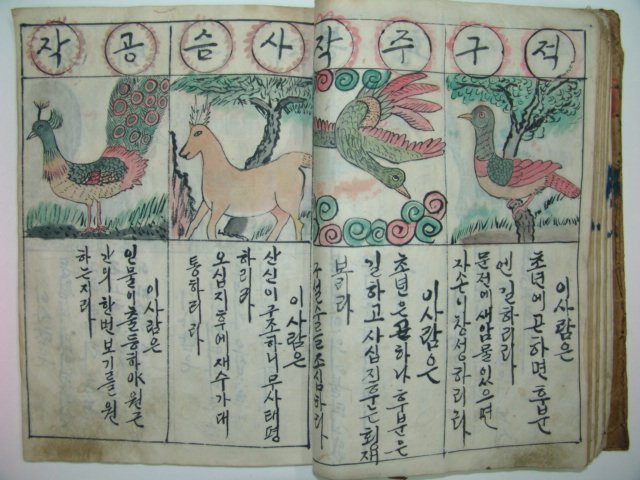 적구
이사람은
초년에 곤하면 후분
엔 길하리라
문전에 새암물 있으면
자손이 창성하리라
주작
이사람은
초년은 곤하나 후분은
길하고 사십지후는 횡재
구설수를 조심하라
사슴
이사람은
산신이 구조하니 무사태평
하리라
오십지후에 재수가 대
통하리라
공작
이사람은
인물이 출등하야 원근
간의 한번 보기를 원
하는지라